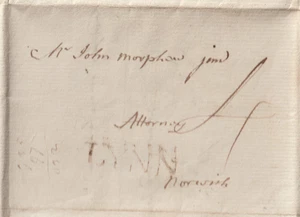 Mr John Morphew junr
4
Attorney
LYNN
Norwich